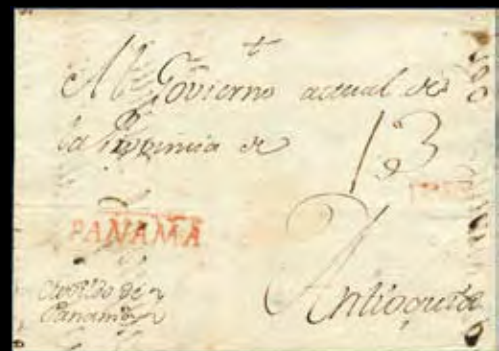 Al Govierno actual de
la Provincia de
13
PANAMA
Antioquia
Cavildo de
Panamá